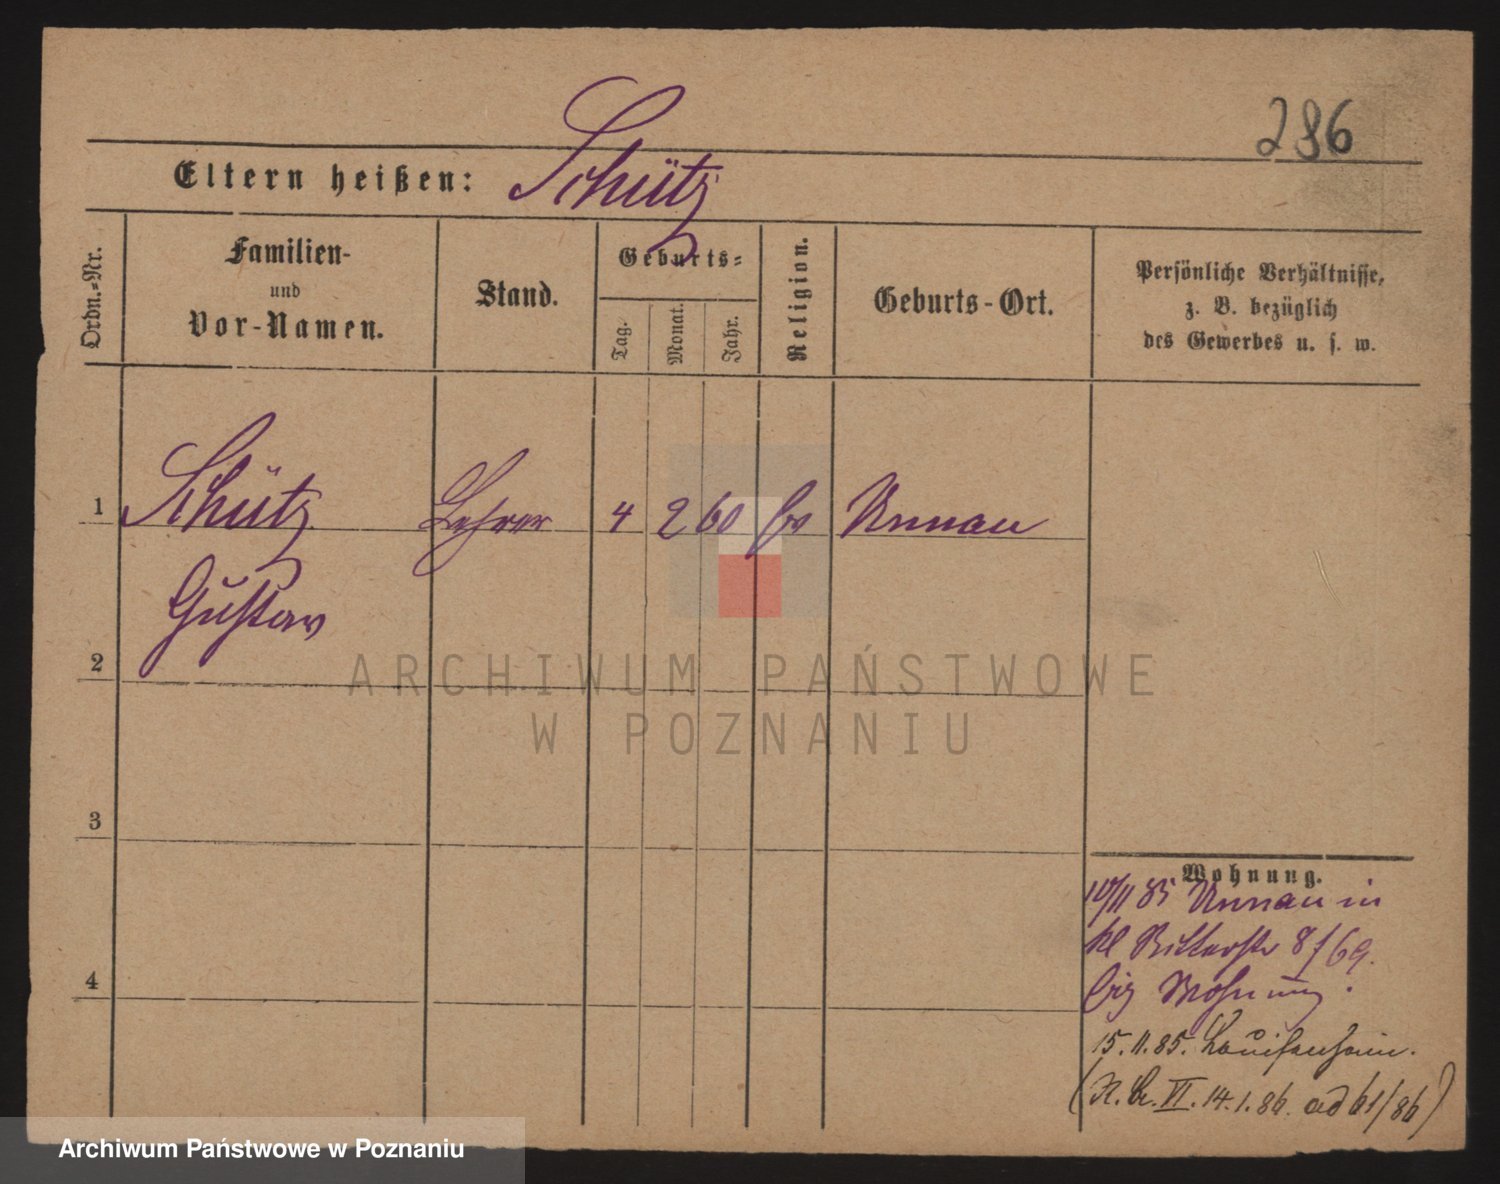 286
Eltern heißen: Schütz
Ordn.-Nr.
Familien-
und
Vor-Namen.
Stand.
Geburts-
Tag.
Monat.
Jahr.
Religion.
Geburts-Ort.
Persönliche Verhältnisse,
z. B. bezüglich
des Gewerbes u. s. w.
1 Schütz Lehrer 4 2 60 Unnau
Gustav
2
3
4
Wohnung.
10/11 85 Unnau in
kl Ritterstr 8 / 69.
Wohnung.
15. 11. 85. Louisenhain.
VI. 14. 1. 86. ad 61/86)
ARCHIWUM PAŃSTWOWE
W POZNANIU
Archiwum Państwowe w Poznaniu